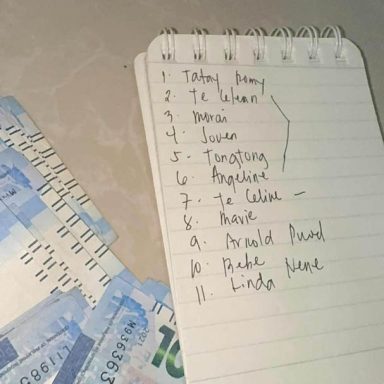 1. Tatay Romy
2. Te
3. Morai
4. Joven
5. Tongtong
6. Angeline
7. Te Celine –
8. Mavie
9. Arnold
10. Bebe Nene
11. Linda
M936363
10